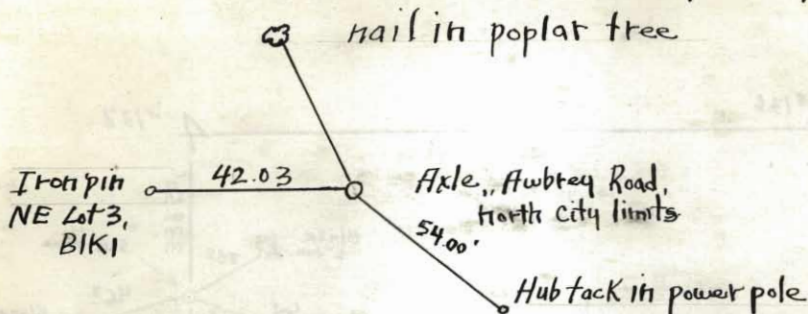 nail in poplar tree
Iron pin
NE Lot 3,
BIK1
42.03
Axle, Awbrey Road,
north city limits
54.00'
Hub tack in power pole